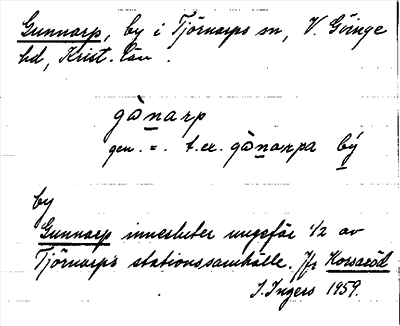 Gunnarp, by i Tjörnarps sn, V. Göinge
hd, Krist. län.
gànarp
gen. =. t.ex. gànarpa bý
by
Gunnarp innesluter ungefär 1/2 av
Tjörnarps stationssamhälle. Jfr Korsaröd
I. Ingers 1959.